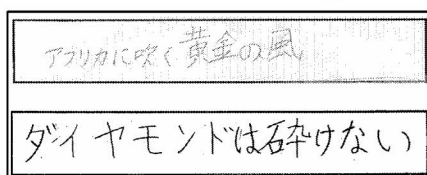 アフリカに吹く黄金の風
ダイヤモンドは砕けない